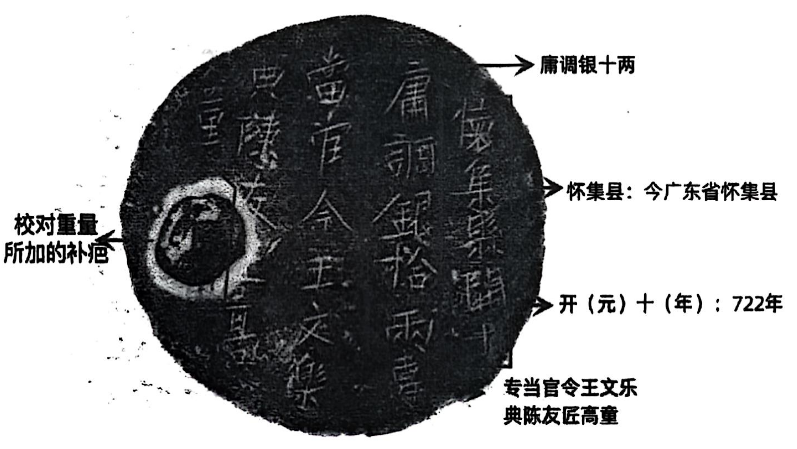 懷集縣開十
庸調銀拾兩專
當官令王文樂
典陳友匠高
童
庸调银十两
怀集县：今广东省怀集县
校对重量
所加的补疤
开（元）十（年）：722年
专当官令王文乐
典陈友匠高童